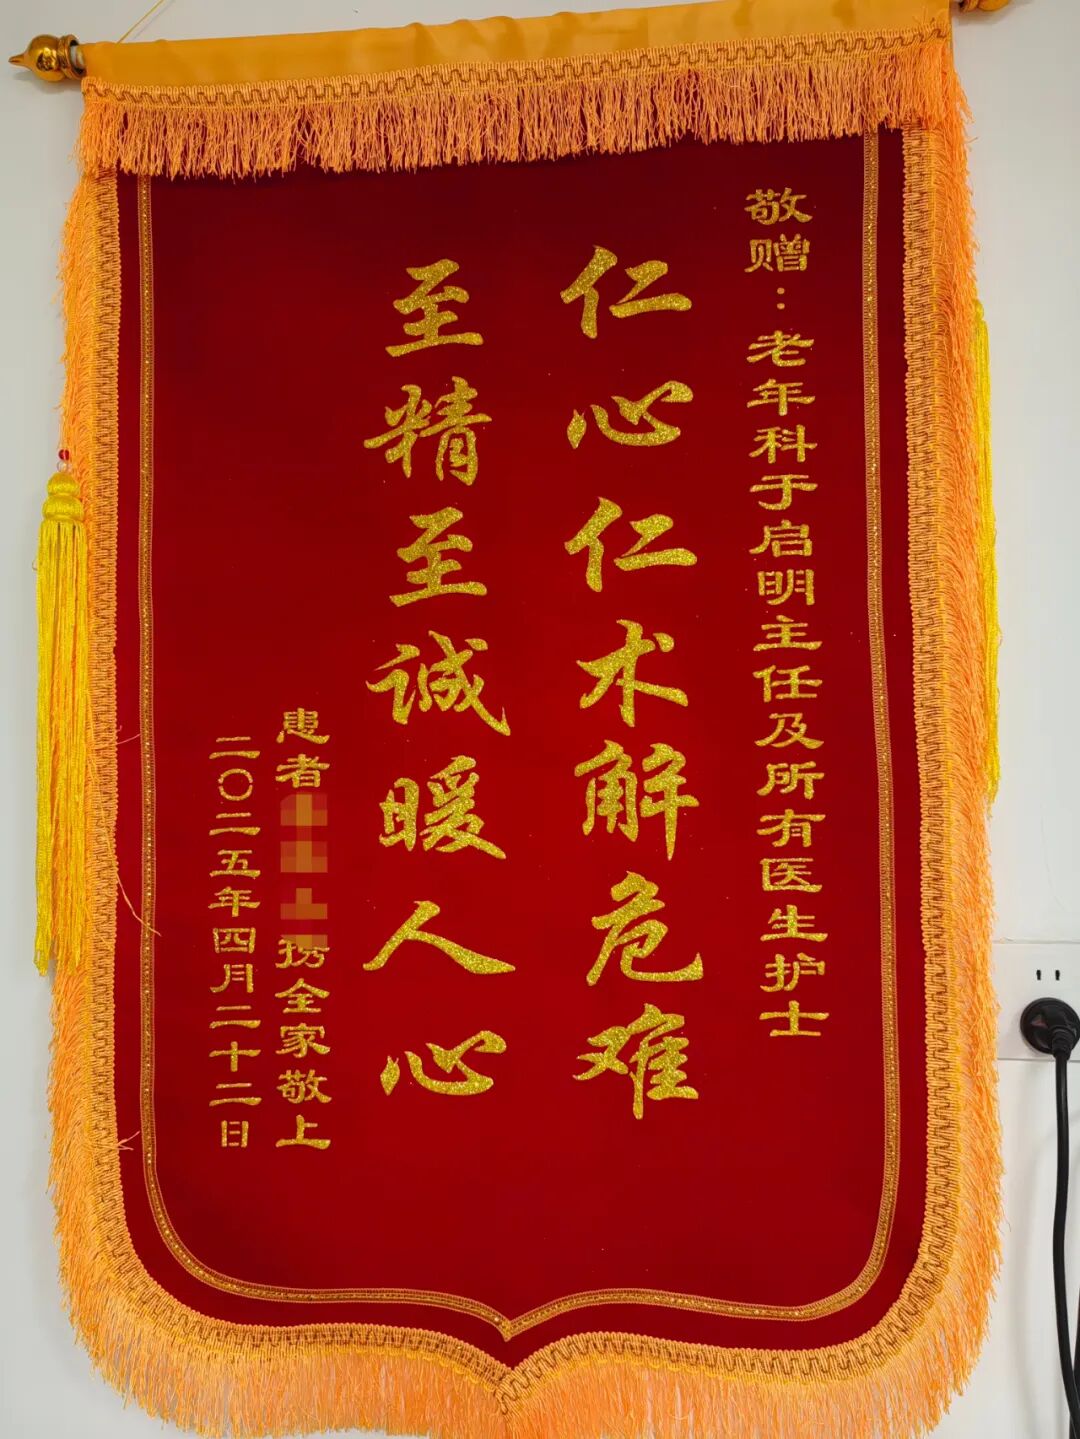 敬赠：老年科于启明主任及所有医生护士
仁心仁术解危难
至精至诚暖人心
患者 捞全家敬上
二〇二五年四月二十二日